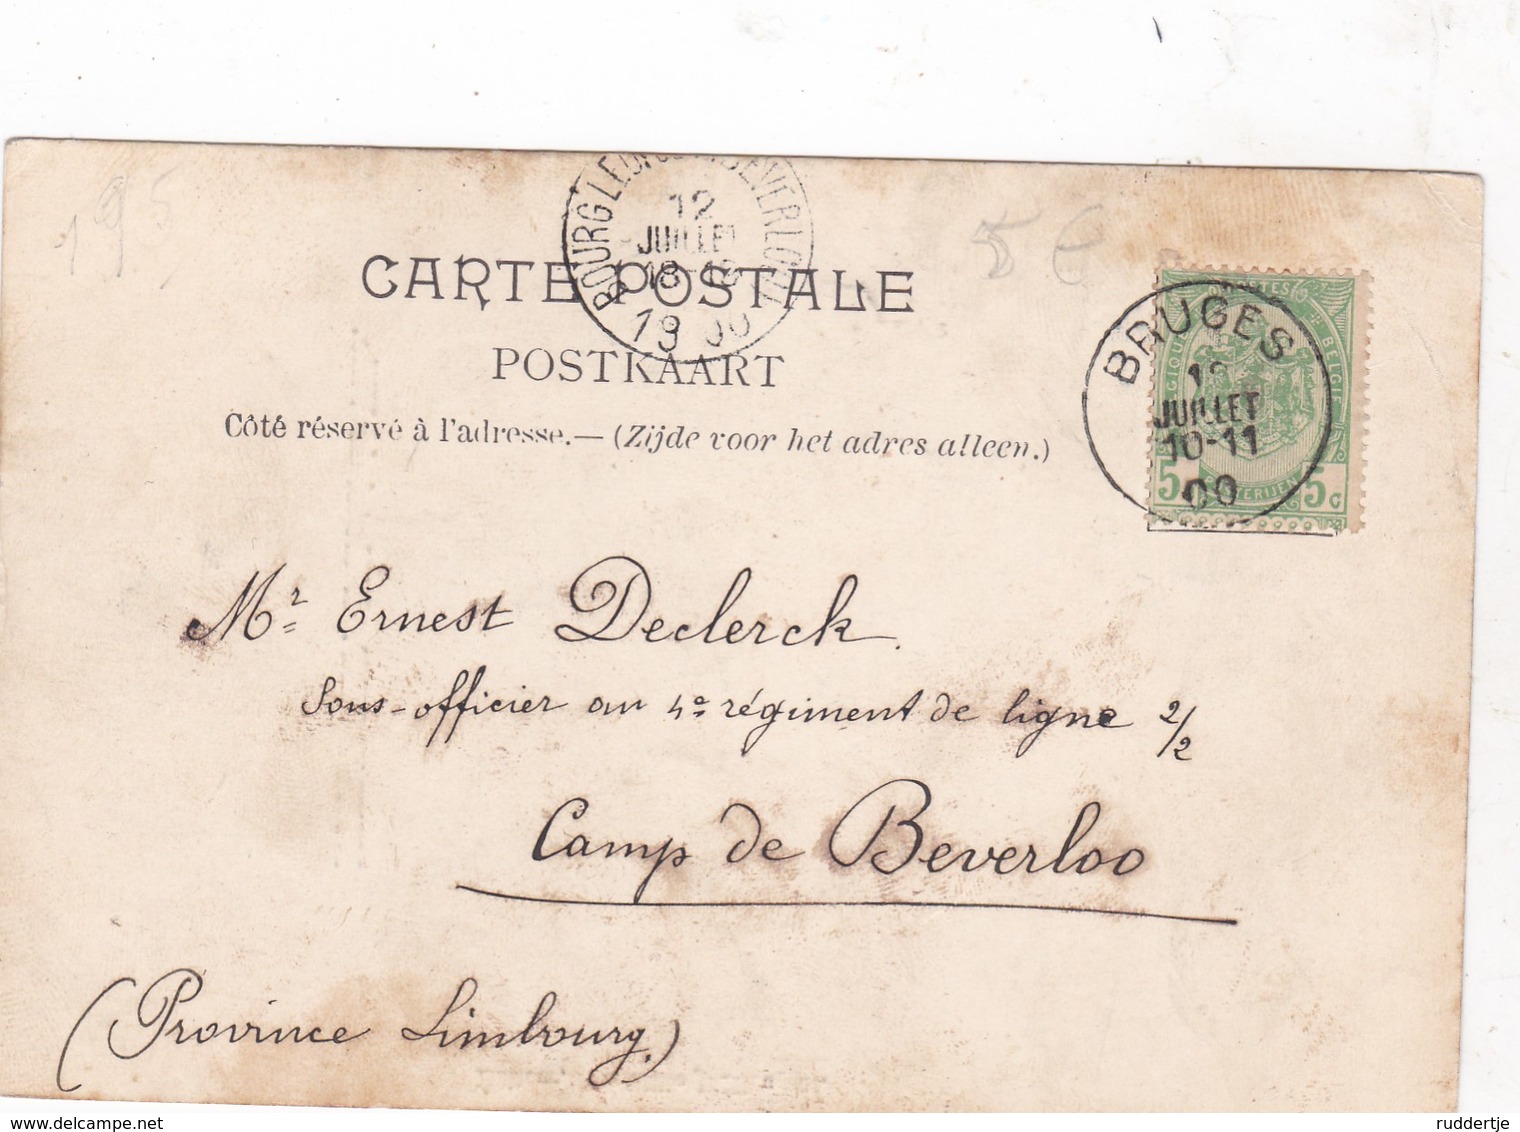 195
12
JUILLET
19 00
5 €
CARTE POSTALE
POSTKAART
Côté réservé à l'adresse.— (Zijde voor het adres alleen.)
BRUGES
12
JUILLET
10-11
00
BELGIE
5 5c
Mr Ernest Declerck.
Sous-officier au 4e régiment de ligne 2/2
Camp de Beverloo
(Province Limbourg.)
delcampe.net
ruddertje